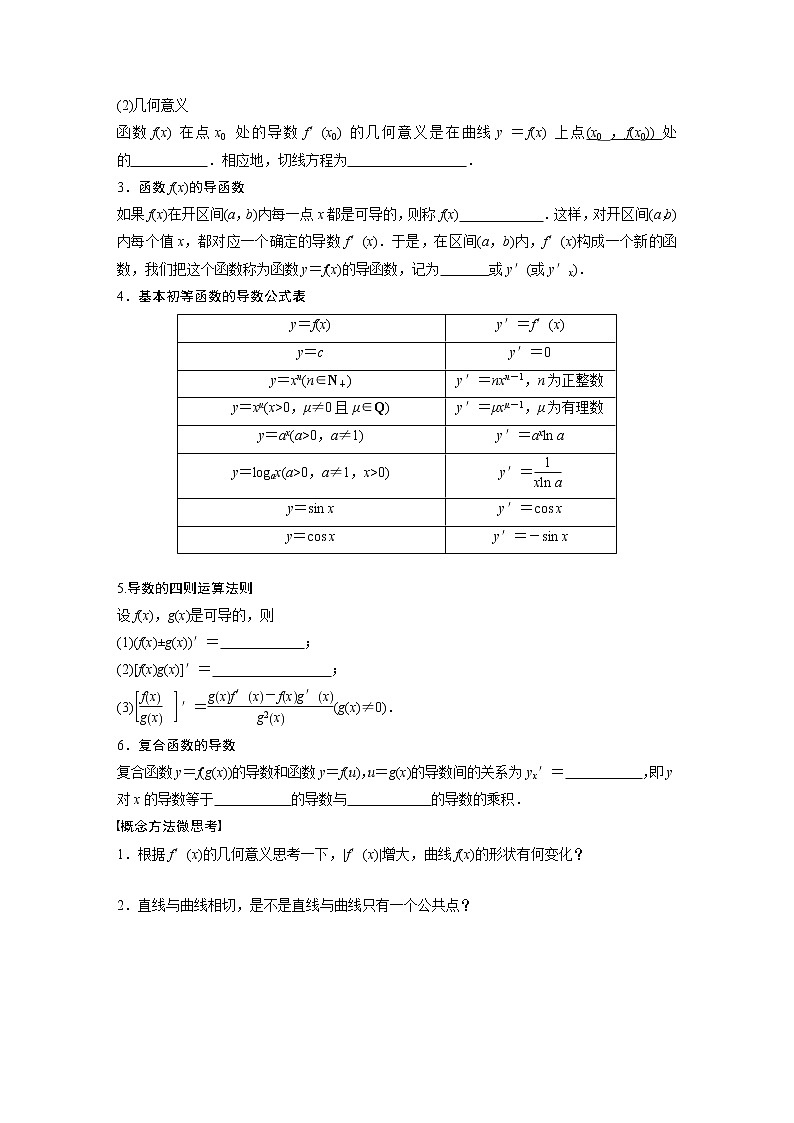 (2)几何意义
函数 f(x) 在点 x₀ 处的导数 f′(x₀) 的几何意义是在曲线 y =f(x) 上点(x₀ ,f(x₀)) 处
的___________.相应地,切线方程为_________________.
3.函数 f(x)的导函数
如果 f(x)在开区间(a,b)内每一点 x 都是可导的,则称 f(x)____________.这样,对开区间(a,b)
内每个值 x,都对应一个确定的导数 f′(x).于是,在区间(a,b)内,f′(x)构成一个新的函
数,我们把这个函数称为函数 y=f(x)的导函数,记为_______或 y′(或 y′ₓ).
4.基本初等函数的导数公式表
y=f(x) y′=f′(x)
y=c y′=0
y=xⁿ(n∈N₊) y′=nxⁿ⁻¹,n 为正整数
y=x^μ(x>0,μ≠0 且 μ∈Q) y′=μx^(μ-1),μ 为有理数
y=aˣ(a>0,a≠1) y′=aˣln a
y=logₐx(a>0,a≠1,x>0) y′=1/(xln a)
y=sin x y′=cos x
y=cos x y′=-sin x
5.导数的四则运算法则
设 f(x),g(x)是可导的,则
(1)(f(x)±g(x))′=____________;
(2)[f(x)g(x)]′=_________________;
(3)[f(x)/g(x)]′=(g(x)f′(x)-f(x)g′(x))/g²(x)(g(x)≠0).
6.复合函数的导数
复合函数 y=f(g(x))的导数和函数 y=f(u),u=g(x)的导数间的关系为 yₓ′=___________,即 y
对 x 的导数等于___________的导数与____________的导数的乘积.
概念方法微思考
1.根据 f′(x)的几何意义思考一下,|f′(x)|增大,曲线 f(x)的形状有何变化?
2.直线与曲线相切,是不是直线与曲线只有一个公共点?